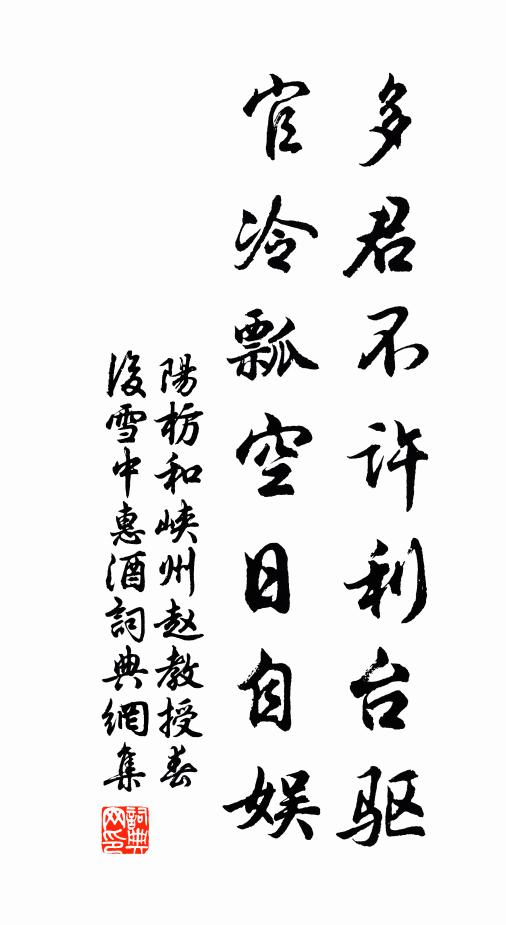 多君不许利台驱
官冷瓢空日自娱
陽枋和峡州赵教授春
後雪中惠酒詞典網集
詞典網印